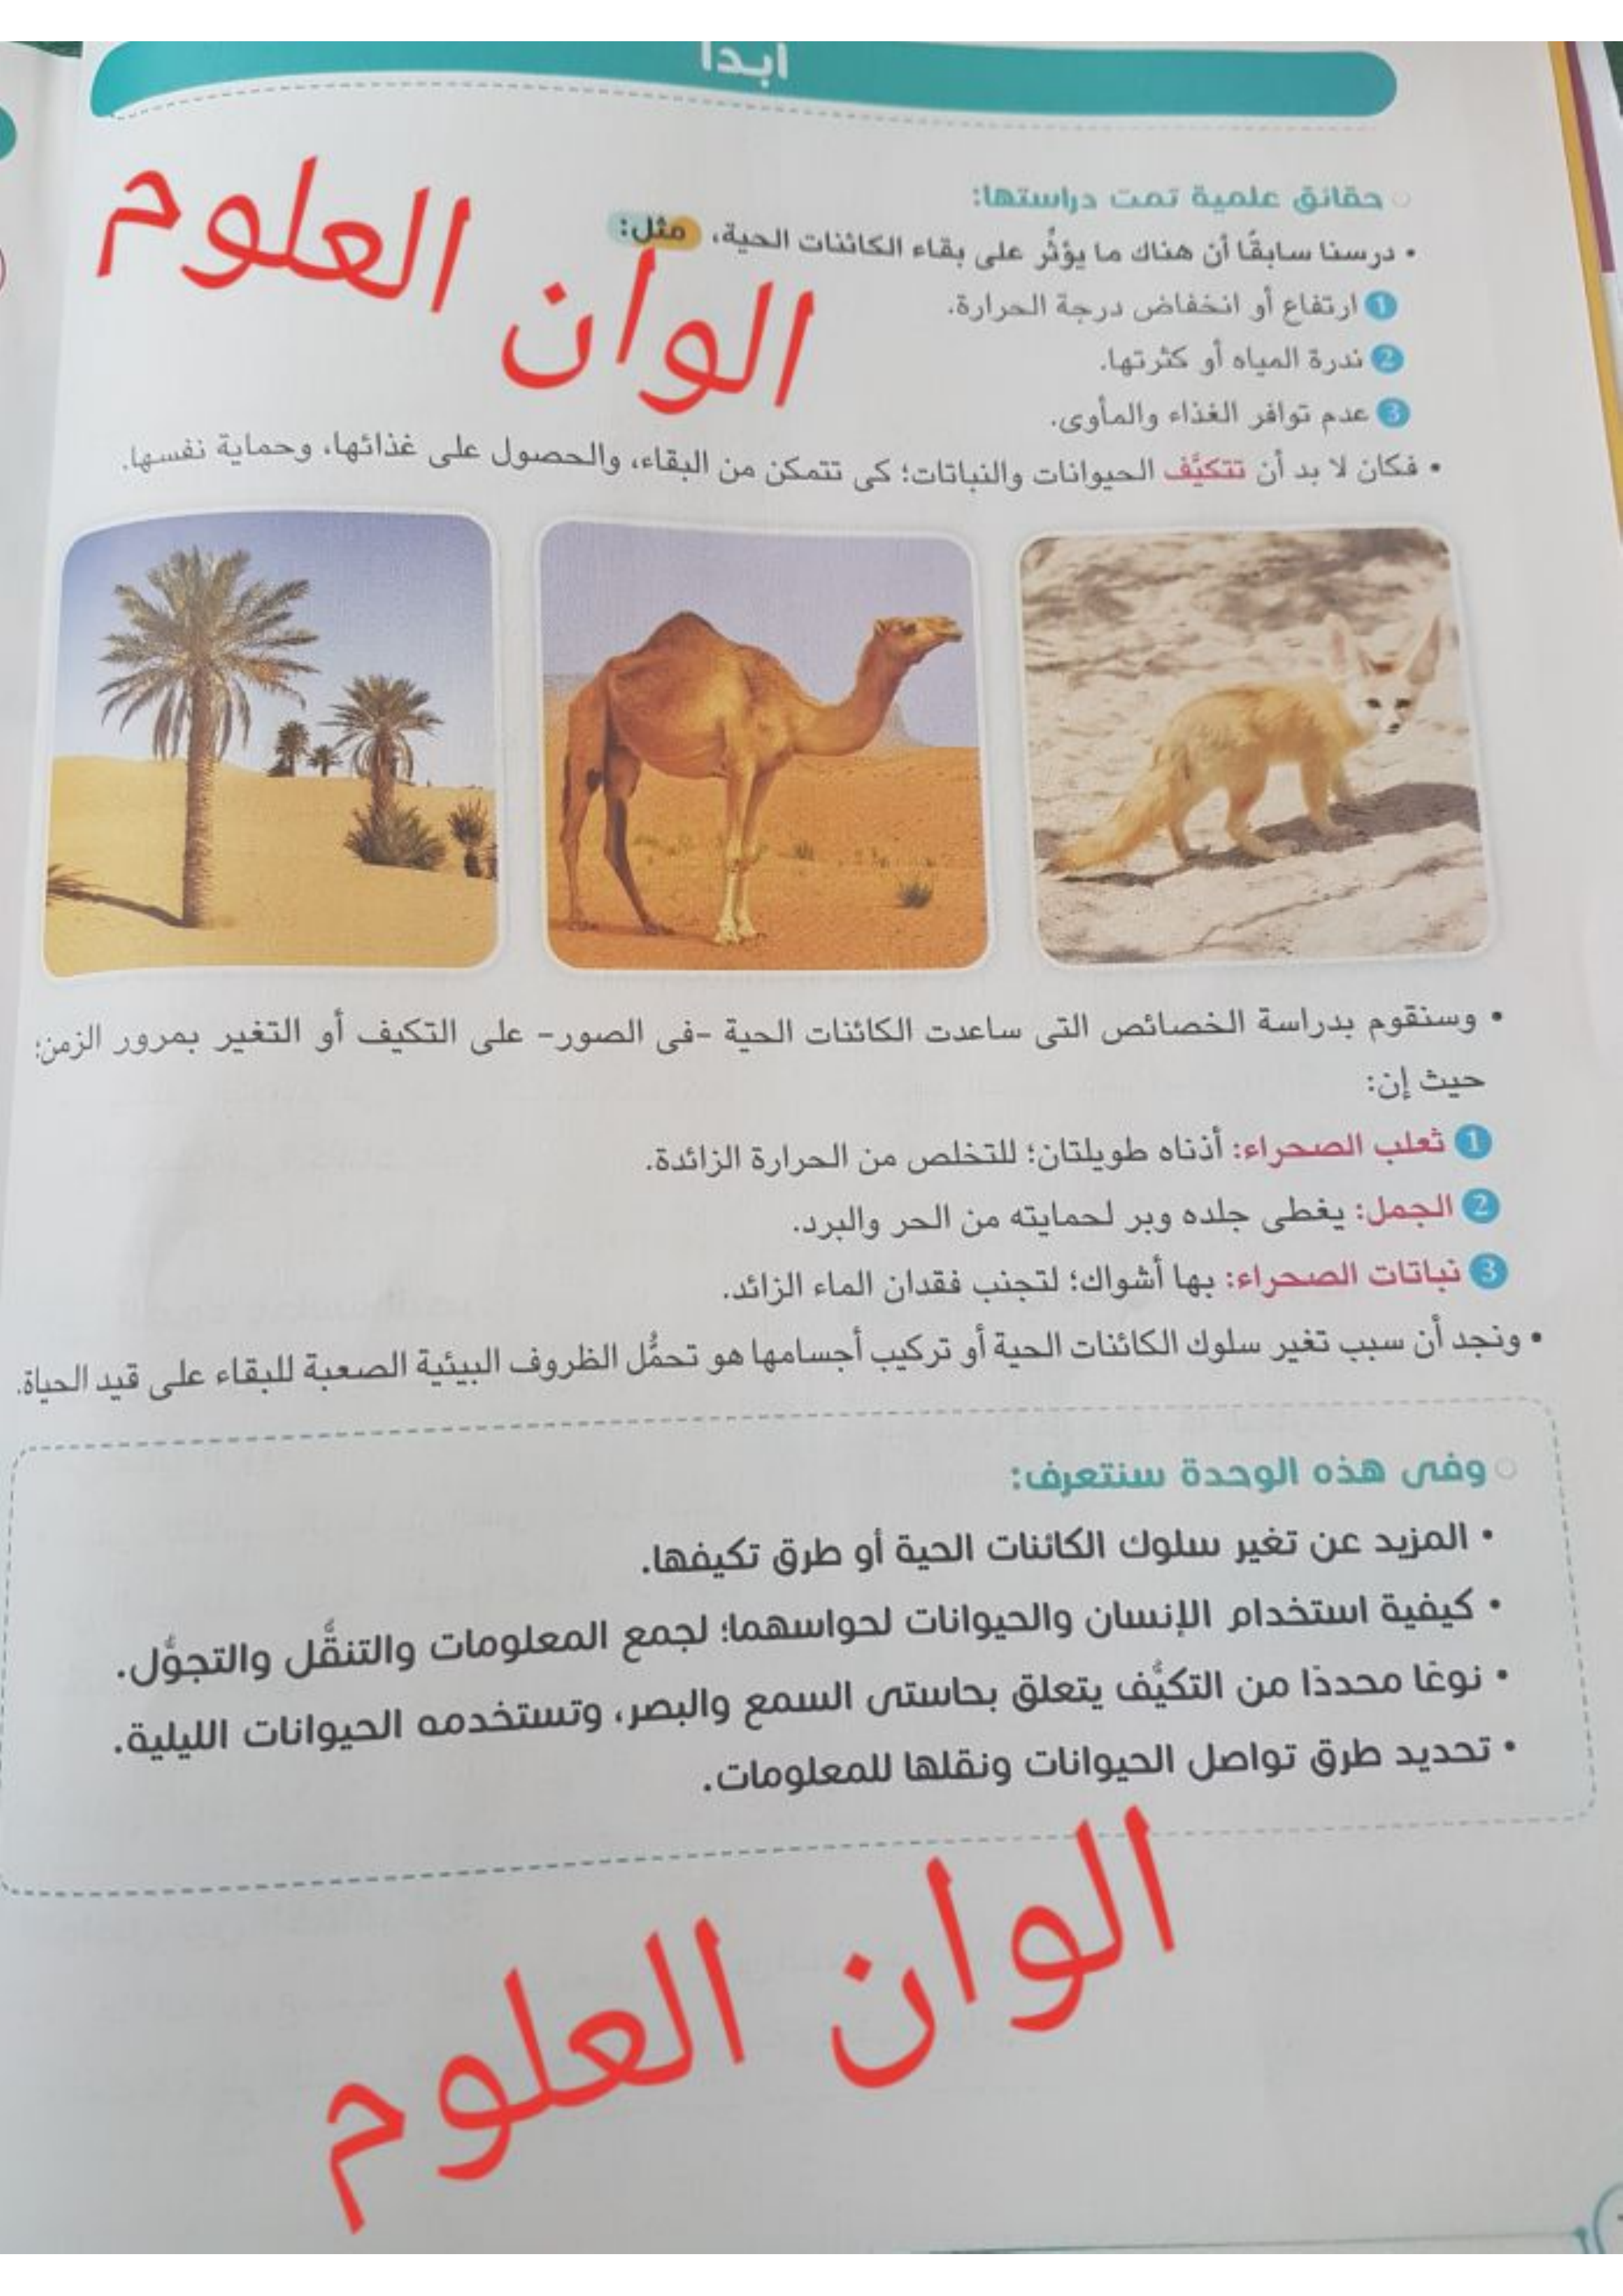 ابدأ
حقائق علمية تمت دراستها:
• درسنا سابقًا أن هناك ما يؤثِّر على بقاء الكائنات الحية، مثل:
1 ارتفاع أو انخفاض درجة الحرارة.
2 ندرة المياه أو كثرتها.
3 عدم توافر الغذاء والمأوى.
ألوان العلوم
• فكان لا بد أن تتكيَّف الحيوانات والنباتات؛ كى تتمكن من البقاء، والحصول على غذائها، وحماية نفسها.
• وسنقوم بدراسة الخصائص التى ساعدت الكائنات الحية -فى الصور- على التكيف أو التغير بمرور الزمن؛
حيث إن:
1 ثعلب الصحراء: أذناه طويلتان؛ للتخلص من الحرارة الزائدة.
2 الجمل: يغطى جلده وبر لحمايته من الحر والبرد.
3 نباتات الصحراء: بها أشواك؛ لتجنب فقدان الماء الزائد.
• ونجد أن سبب تغير سلوك الكائنات الحية أو تركيب أجسامها هو تحمُّل الظروف البيئية الصعبة للبقاء على قيد الحياة.
وفى هذه الوحدة سنتعرف:
• المزيد عن تغير سلوك الكائنات الحية أو طرق تكيفها.
• كيفية استخدام الإنسان والحيوانات لحواسهما؛ لجمع المعلومات والتنقُّل والتجوُّل.
• نوعًا محددًا من التكيُّف يتعلق بحاستى السمع والبصر، وتستخدمه الحيوانات الليلية.
• تحديد طرق تواصل الحيوانات ونقلها للمعلومات.
الوان العلوم